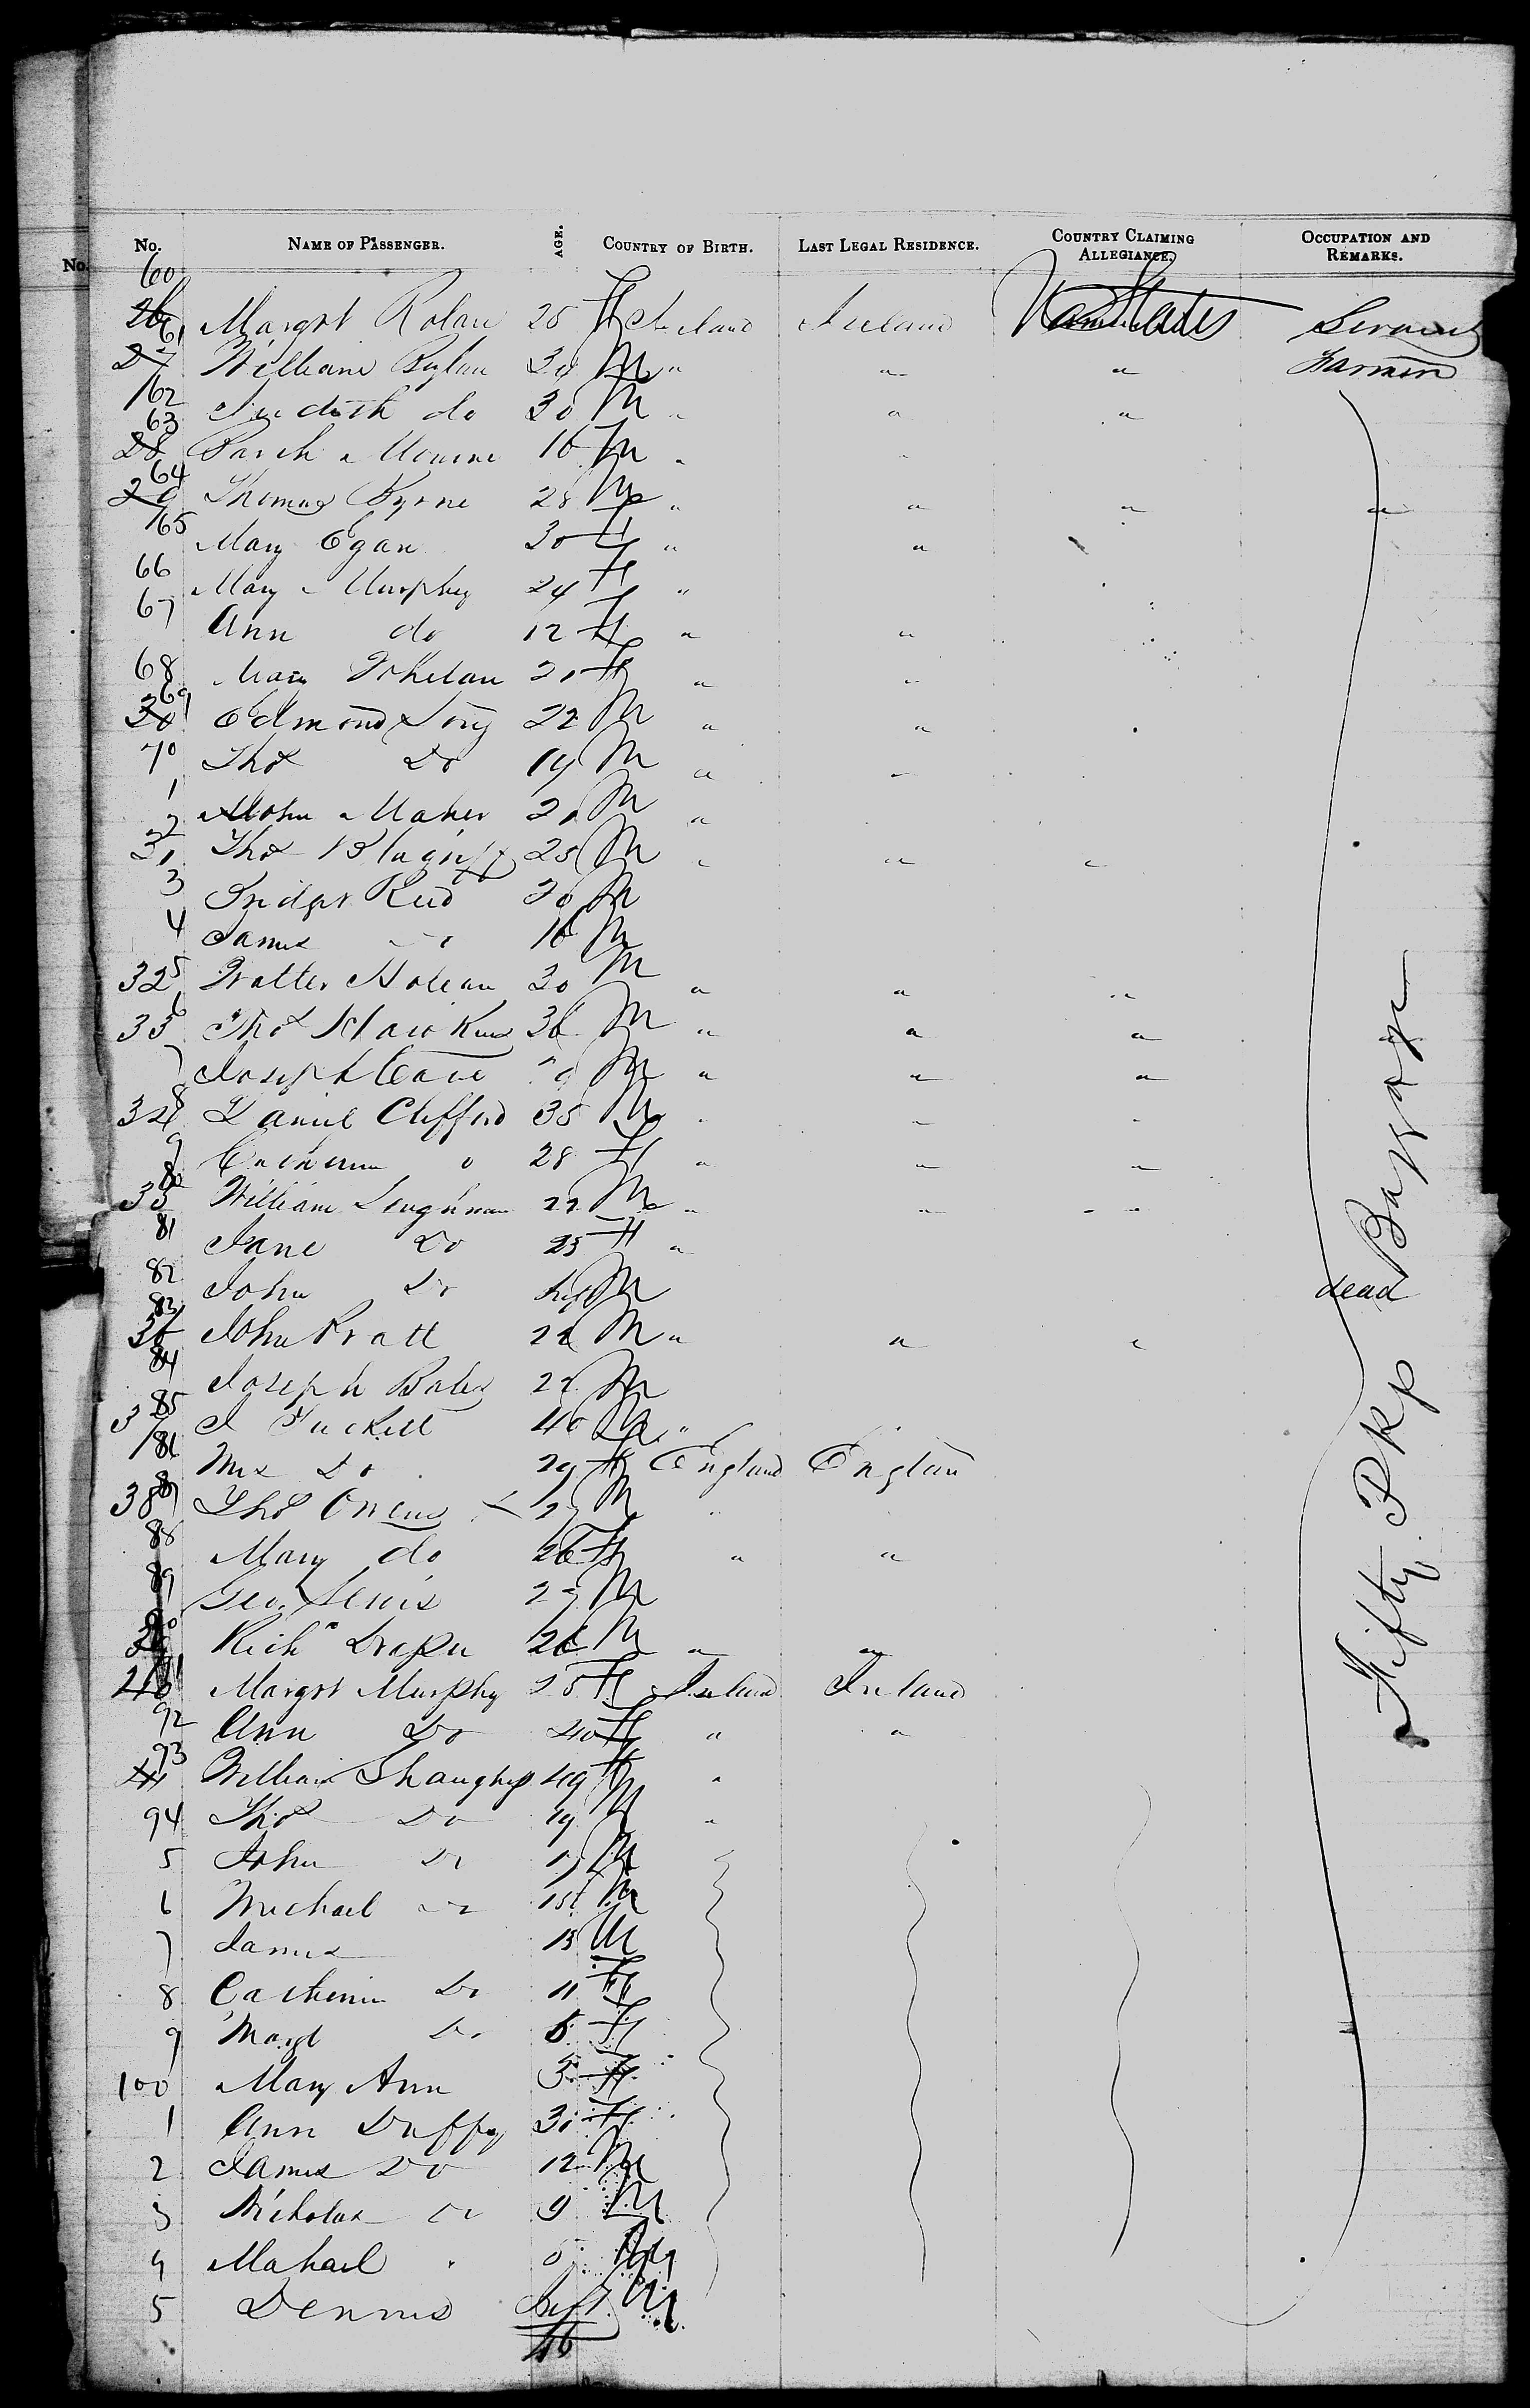 No. NAME OF PASSENGER. AGE. COUNTRY OF BIRTH. LAST LEGAL RESIDENCE. COUNTRY CLAIMING ALLEGIANCE. OCCUPATION AND REMARKS.
No.
60
26 Margrt 25 F Ireland Ireland States Servant
61
27 William 30 M " " " Farmer
62 Judith do 30 M " " "
63
28 16 M "
64
29 Thomas Byrne 28 M " " " "
65 Mary Egan 30 F " "
66 Mary Murphy 24 F "
67 Ann do 12 F " "
68 Mary Phelan 20 F " "
69
30 Edmond Long 22 M " "
70 Thos Do 19 M " "
1 John Maher 21 M "
2
31 Thos 25 M " " "
3 Bridget Reid 20 M
4 James Do 16 M
5
32 Walter Holean 30 M " " "
6
33 Thos Hawkins 36 M " " "
7 Joseph M " " "
8
34 Daniel Clifford 35 M " " "
9 Catherine Do 28 F " " "
80
35 William Loughnan 22 M " " "
81 Jane Do 25 F "
82 John Do Inft M dead
83
36 John Pratt 22 M " " "
84 Joseph Bates 22 M
85
37 J Tuckett 40 M "
86 Mrs Do 29 F England England
87
38 Thos Owens 27 M "
88 Mary do 26 F " "
89 Geo. Lewis 27 M
90
39 Richd Draper 26 M " "
91
40 Margrt Murphy 25 F Ireland Ireland
92 Ann Do 40 F " "
93
41 William Shaughnessy 49 M "
94 Thos Do 19 M "
5 John Do 17 M
6 Michael Do 15 M
7 James 13 M
8 Catherine Do 11 F
9 Margt Do 8 F
100 Mary Ann 3 F
1 Ann Duffy 31 F
2 James Do 12 M
3 Nicholas Do 9 M
4 Mahael " 5 M
5 Dennis Inft M
46
Fifty Pkgs Baggage